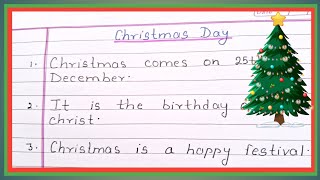 Christmas Day
1. Christmas comes on 25th
December.
2. It is the birthday
christ.
3. Christmas is a happy festival.